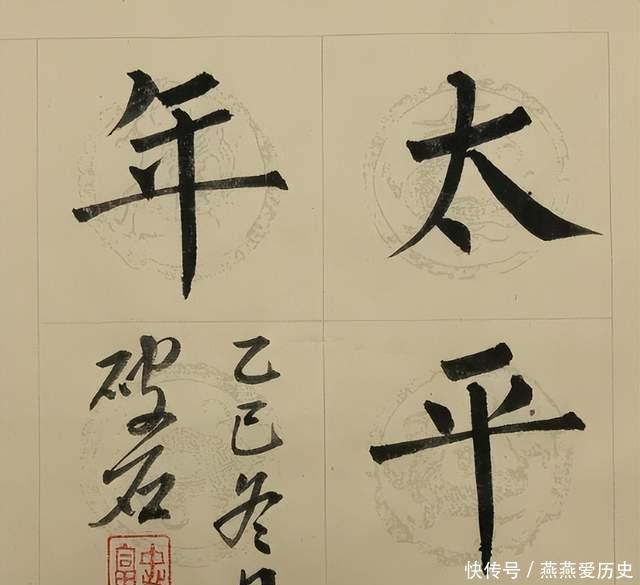 太平
年
乙巳冬
破石
快传号 / 燕燕爱历史